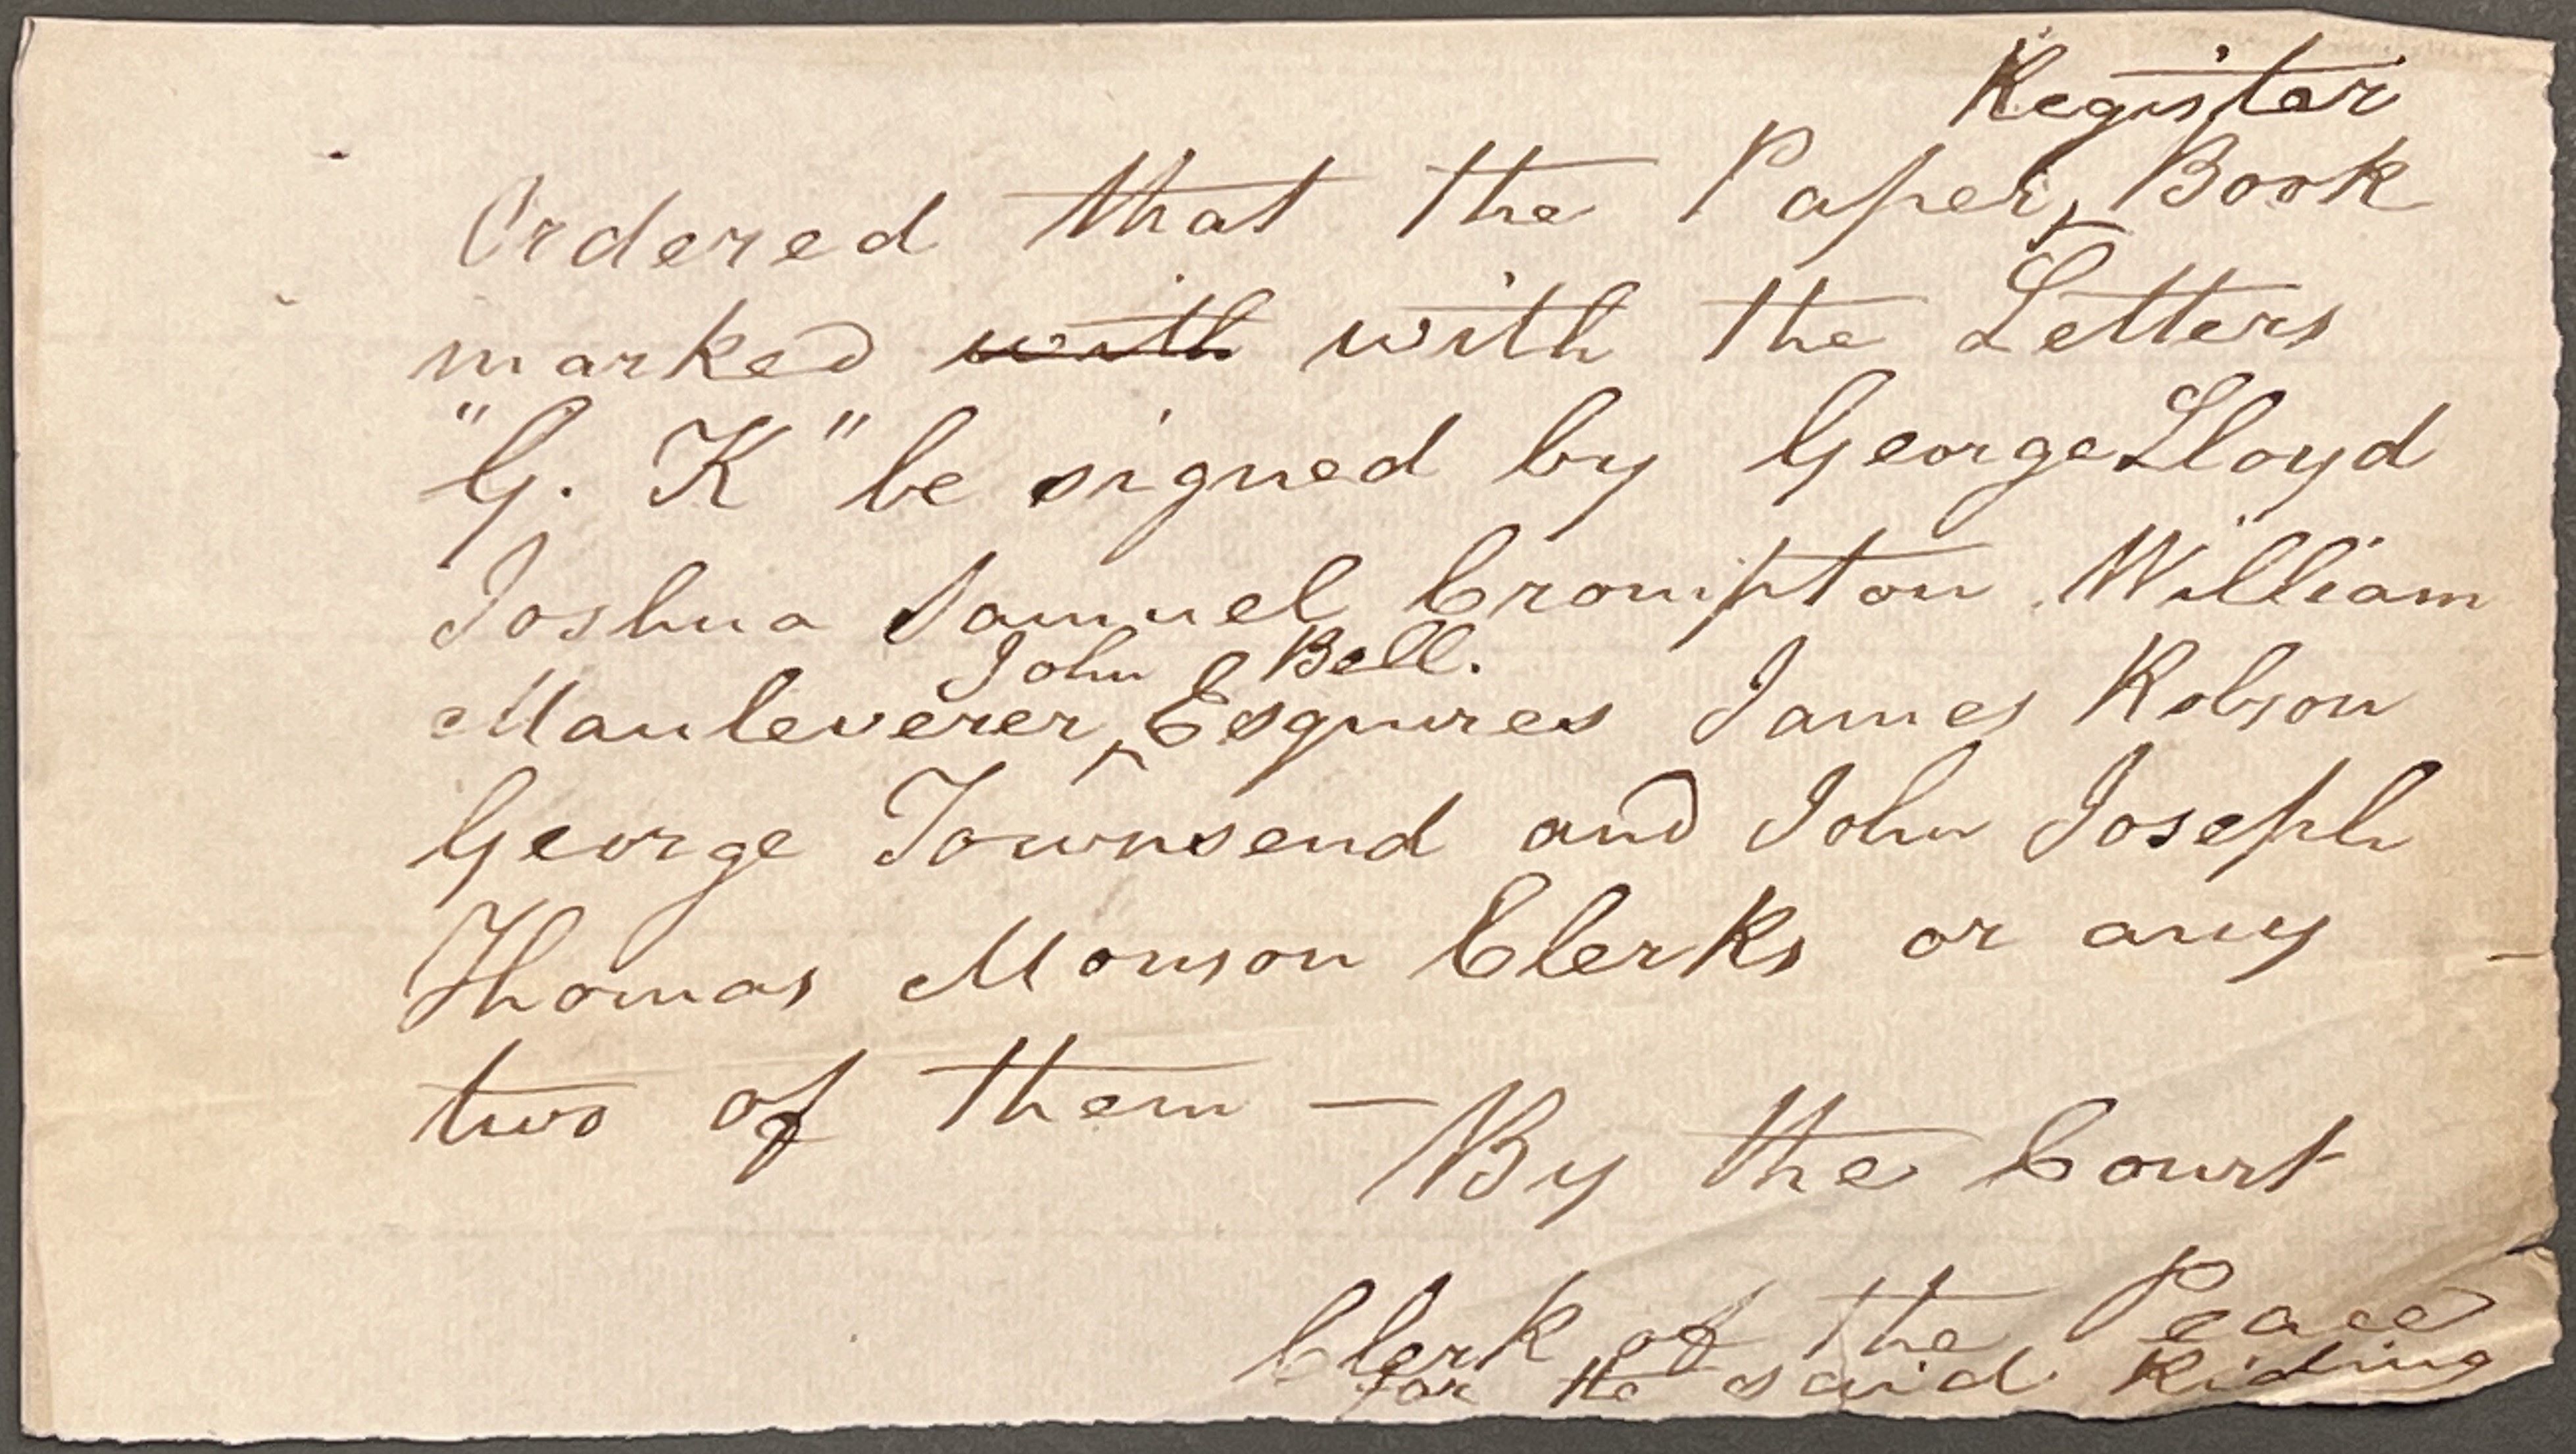 Register
Ordered that the Paper ‸ Book
marked ~~with~~ with the Letters
"G. K" be signed by George Lloyd
Joshua Samuel Crompton William
John Bell.
Mauleverer ‸ Esquires James Robson
George Townsend and John Joseph
Thomas Monson Clerks or any
two of them — By the Court
Clerk of the Peace
for the said Riding